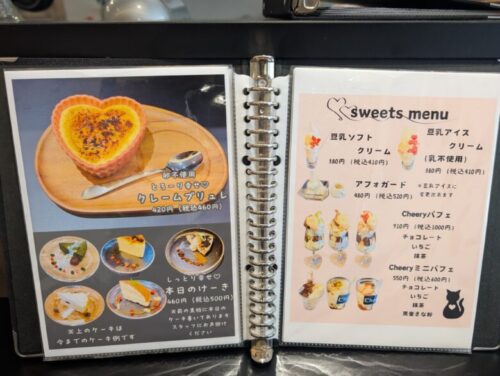 卵不使用
とろーり幸せ♡
クレームブリュレ
420円（税込460円）
しっとり幸せ♡
本日のけーき
460円（税込500円）
※前の黒板に本日の
ケーキ書いてあります
スタッフにお声掛け
ください
※上のケーキは
今までのケーキ例です
sweets menu
豆乳ソフト
クリーム
380円（税込410円）
豆乳アイス
クリーム
（乳不使用）
380円（税込410円）
アフォガード
480円（税込520円）
※豆乳アイスに
変更出来ます
Cheeryパフェ
910円（税込1000円）
チョコレート
いちご
抹茶
Cheeryミニパフェ
550円（税込600円）
チョコレート
いちご
抹茶
黒蜜きな粉